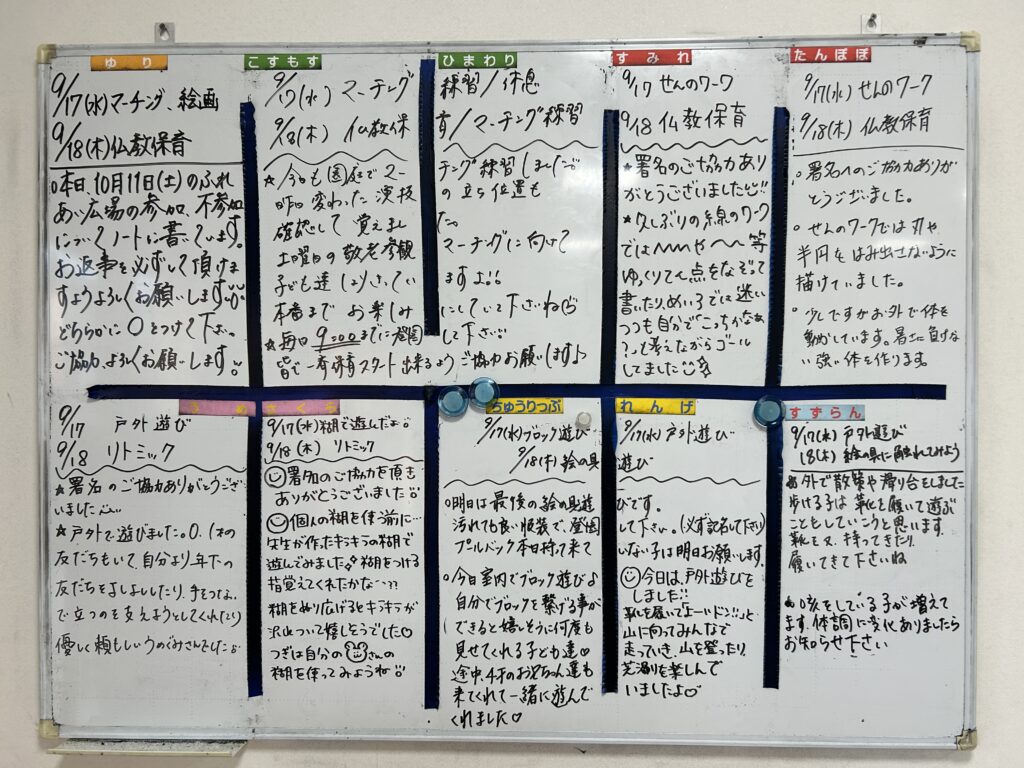 ゆり
9/17(水)マーチング、絵画
9/18(木)仏教保育
○本日、10月11日(土)のふれ
あい広場の参加、不参加
についてノートに書いています。
お返事を必ずして頂けま
すようよろしくお願いします
どちらかに○をつけて下さい。
ご協力よろしくお願いします。
こすもす
9/17(水) マーチング
9/18(木) 仏教保
★今日も園庭でマー
昨日変わった演技
確認して覚えまし
土曜日の敬老参観
子ども達
本番までお楽しみ
★毎日9:00までに登園
皆で一斉保育スタート出来るようご協力お願いします♪
ひまわり
練習/休息
育/マーチング練習
チング練習しました
の立ち位置も
た。
マーチングに向けて
ますよ!!
にしていて下さいね
して下さい
すみれ
9/17 せんのワーク
9/18 仏教保育
★署名のご協力あり
がとうございました!!
★久しぶりの線のワーク
では〰〰や〜〜等
ゆっくりと点をなぞって
書いたりめいろでは迷い
つつも自分で"こっちかなぁ
?"って考えながらゴール
してました
たんぽぽ
9/17(水) せんのワーク
9/18(木) 仏教保育
○署名へのご協力ありが
とうございました。
○せんのワークでは丸や
半円をはみ出さないように
描けていました。
○少しですがお外で体を
動かしています。暑さに負けな
い強い体を作ります。
うめ
9/17 戸外遊び
9/18 リトミック
★署名のご協力ありがとうござ
いました
★戸外で遊びました。0.1才の
友だちもいて、自分より年下の
友だちをよしよししたり、手をつな
で立つのを支えようとしてくれたり
優しく頼もしいうめぐみさんでした
さくら
9/17(水)糊で遊んだよ
9/18(木) リトミック
署名のご協力を頂き
ありがとうございました
個人の糊を使う前に…
先生が作ったキラキラの糊で
遊んでみました♪糊をつける
指覚えてくれたかな…??
糊をぬり広げるとキラキラが
沢山ついて嬉しそうでした♡
つぎは自分の さんの
糊を使ってみようね
ちゅうりっぷ
9/17(水)ブロック遊び
9/18(木)絵の具
○明日は最後の絵の具遊
汚れても良い服装で、登園
プールバック本日持って来て
○今日室内でブロック遊び♪
自分でブロックを繋げる事が
できると嬉しそうに何度も
見せてくれる子ども達♡
途中、4才のお兄ちゃん達も
来てくれて一緒に遊んで
くれました♡
れんげ
9/17(水)戸外遊び
遊び
びです。
して下さい。(必ず記名して下さい)
いない子は明日お願いします。
今日は、戸外遊びを
しました!!
靴を履いてよーいドン!!っと
山に向ってみんなで
走っていき、山を登ったり、
芝滑りを楽しんで
いましたよ♡
すずらん
9/17(水) 戸外遊び
18(木) 絵の具に触れてみよう
★外で散策や滑り台をしました
歩ける子は靴を履いて遊ぶ
こともしていこうと思います。
靴を又、持ってきたり、
履いてきて下さいね
★咳をしている子が増えて
ます。体調に変化ありましたら
お知らせ下さい